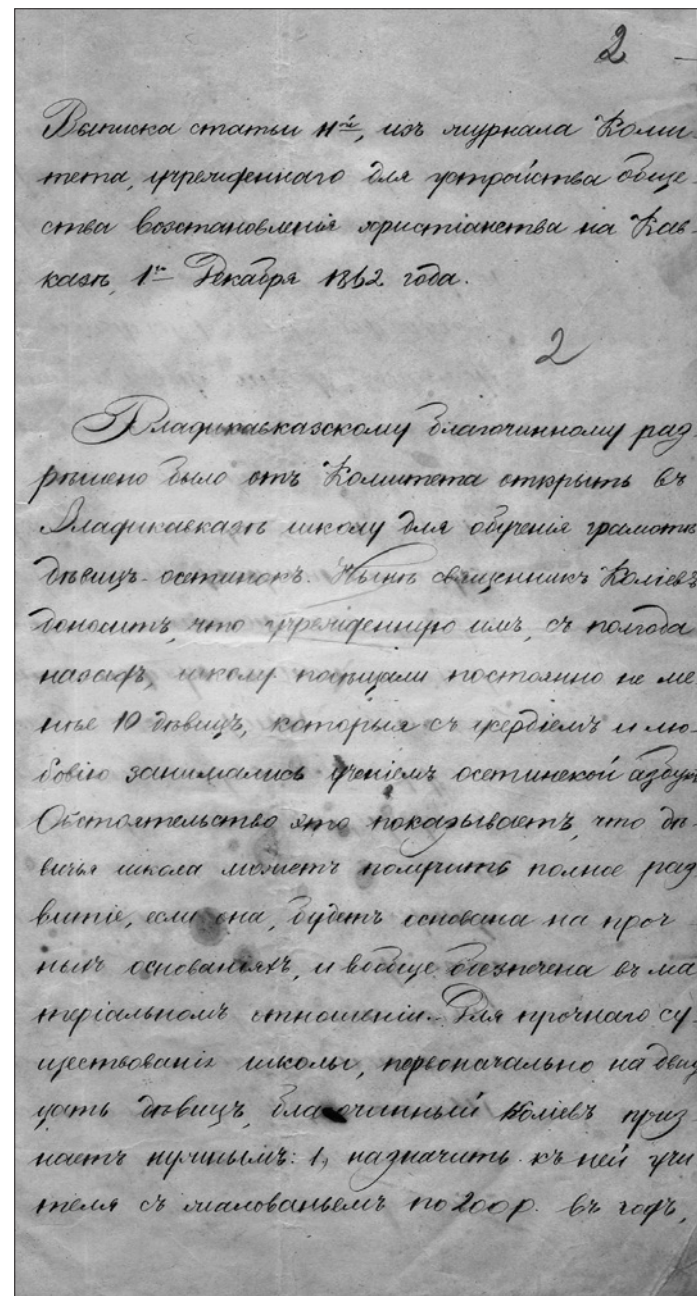 2
Выписка статьи 11й, изъ журнала Коми-
тета, учрежденнаго для устройства обще-
ства возстановленія христіанства на Кав-
казѣ, 1го Декабря 1862 года.
2
Владикавказскому благочинному раз-
рѣшено было отъ Комитета открыть въ
Владикавказѣ школу для обученія грамотѣ
дѣвицъ-осетинокъ. Нынѣ священникъ Коліевъ
доноситъ, что учрежденную имъ, съ полгода
назадъ, школу посѣщали постоянно не ме
нѣе 10 дѣвицъ, которыя съ усердіемъ и лю-
бовію занимались ученіемъ осетинской азбуки
Обстоятельство это показываетъ, что дѣ-
вичья школа можетъ получить полное раз
витіе, если она, будетъ основана на проч-
ныхъ основаніяхъ, и вообще обезпечена въ ма
теріальномъ отношеніи. Для прочнаго су-
ществованія школы, первоначально на двад
цать дѣвицъ, благочинный Коліевъ приз-
наетъ нужнымъ: 1, назначить къ ней учи
теля съ жалованьемъ по 200 р. въ годъ,